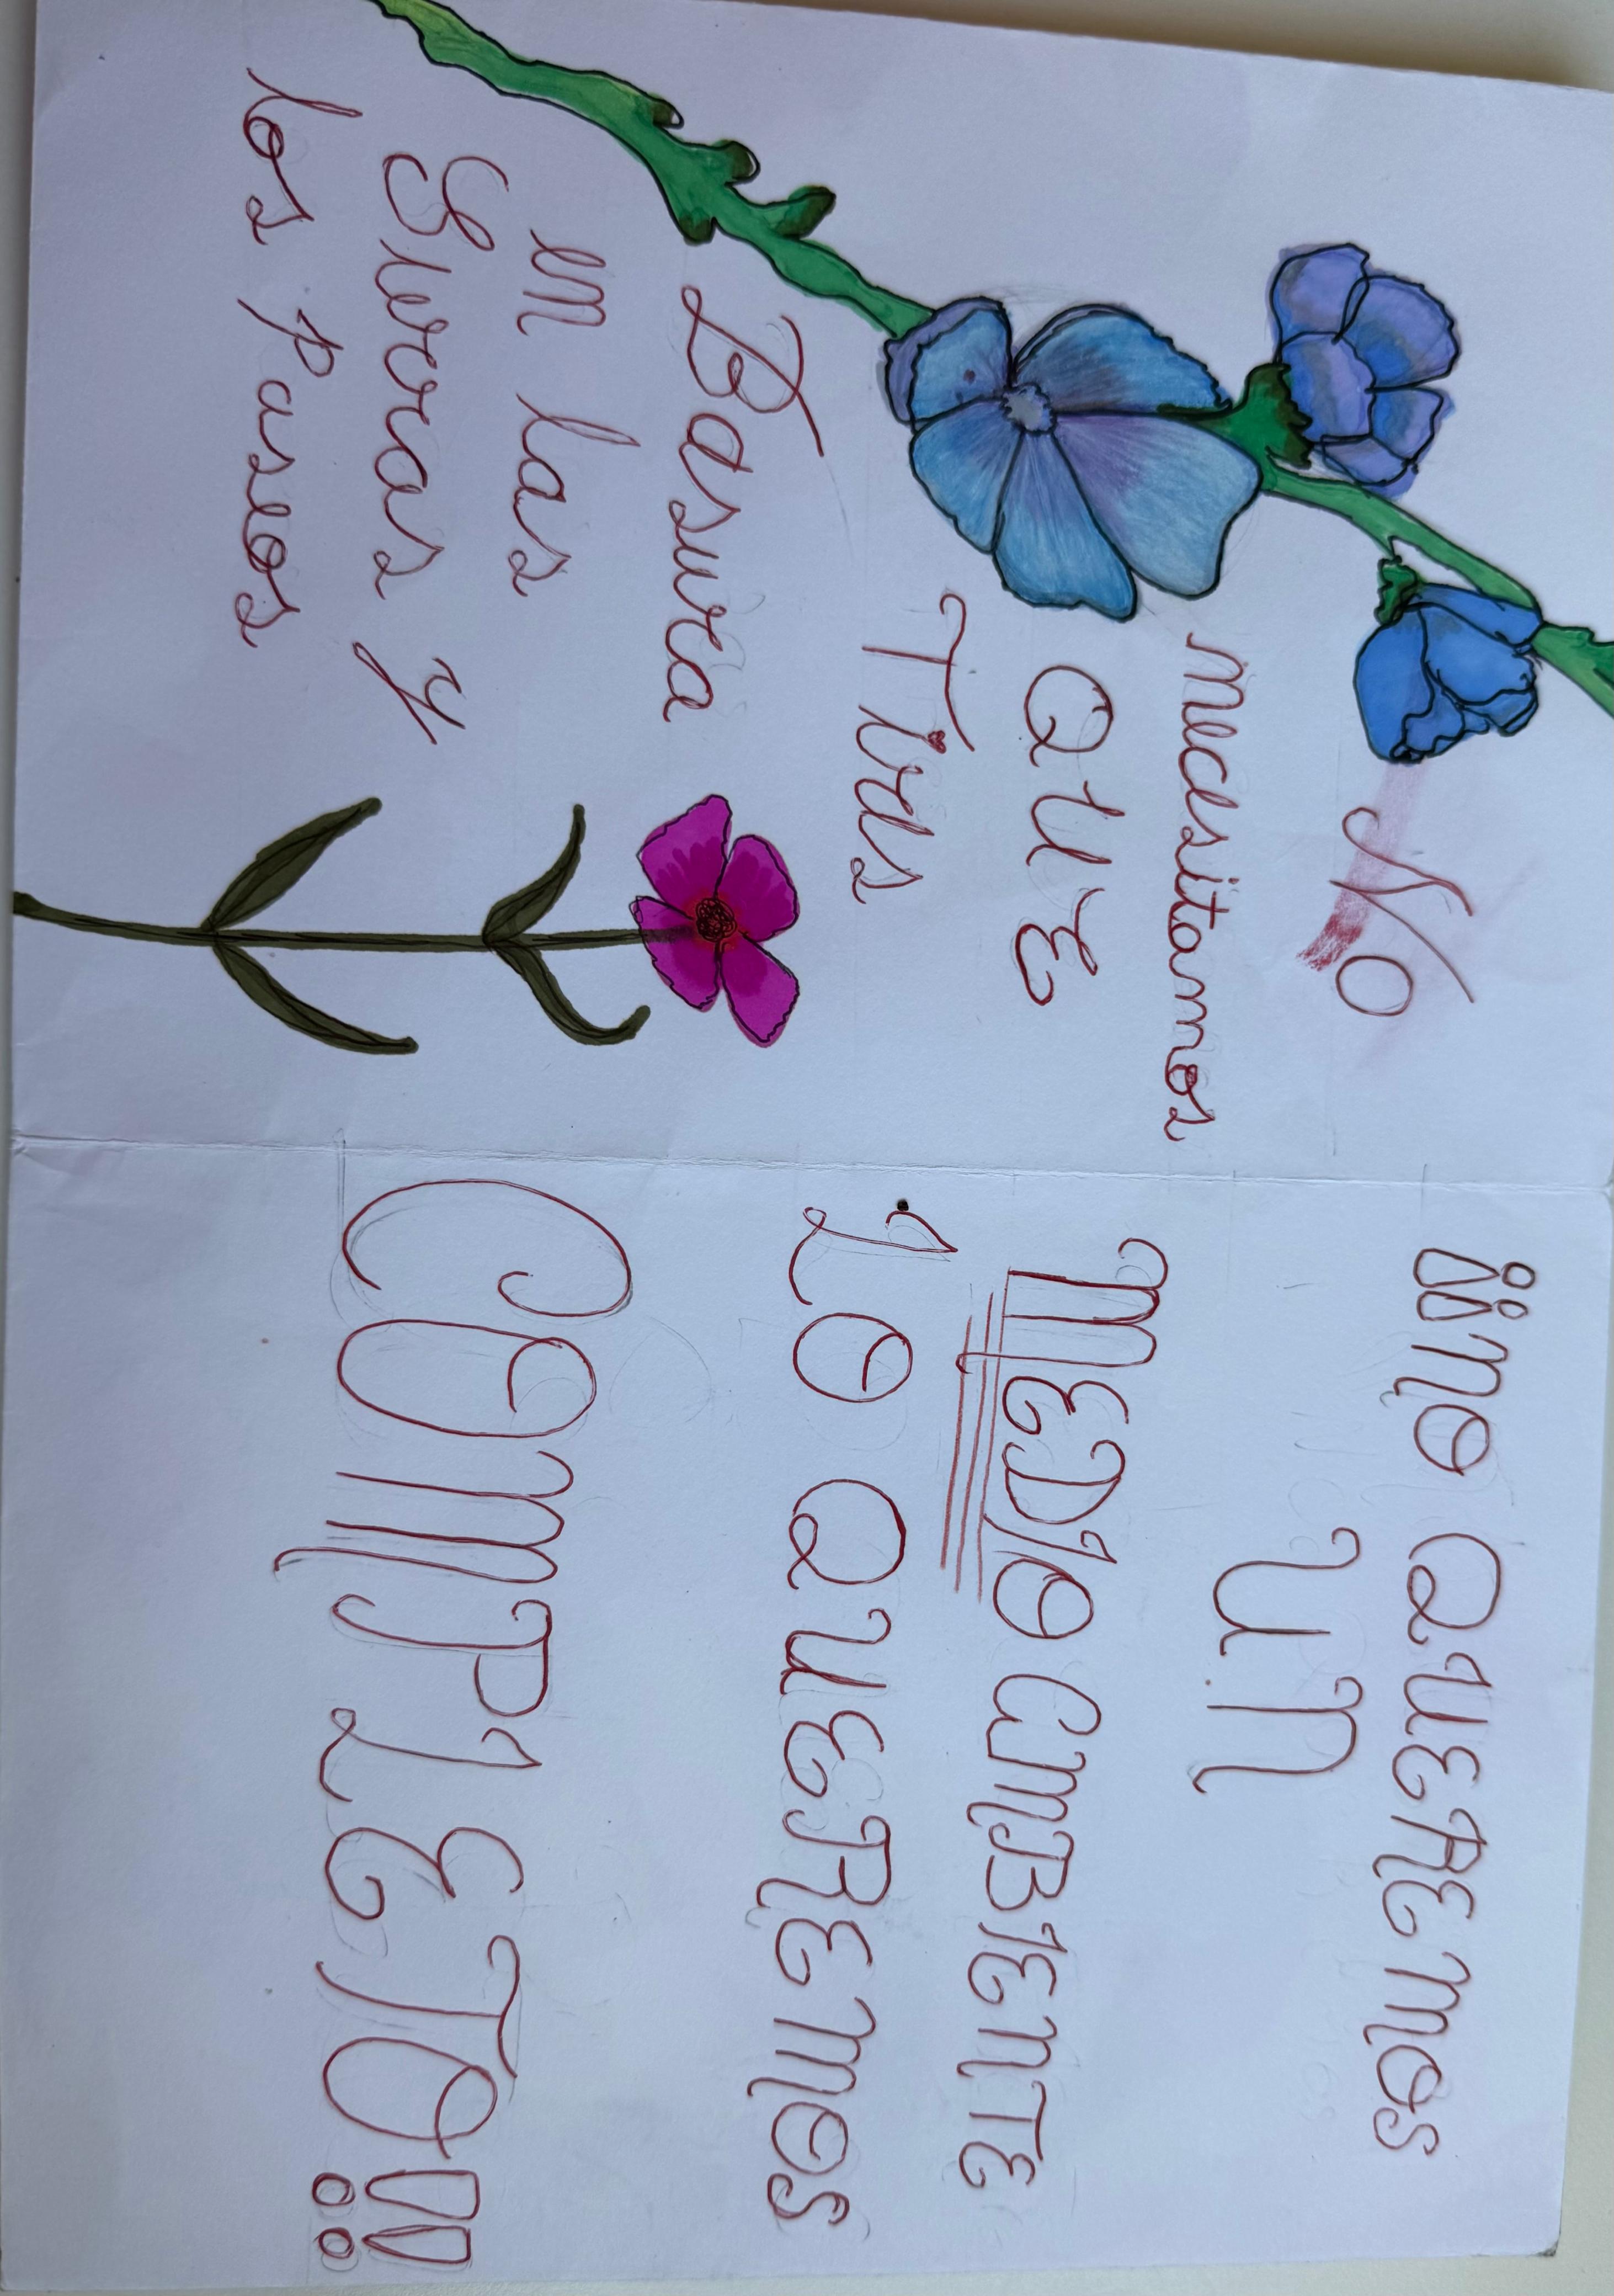 No
necesitamos
QUE
Tiras
Basura
en las
Sierras y
los paseos
¡¡NO QUEREMOS
UN
MEDIO AMBIENTE
LO QUEREMOS
COMPLETO!!